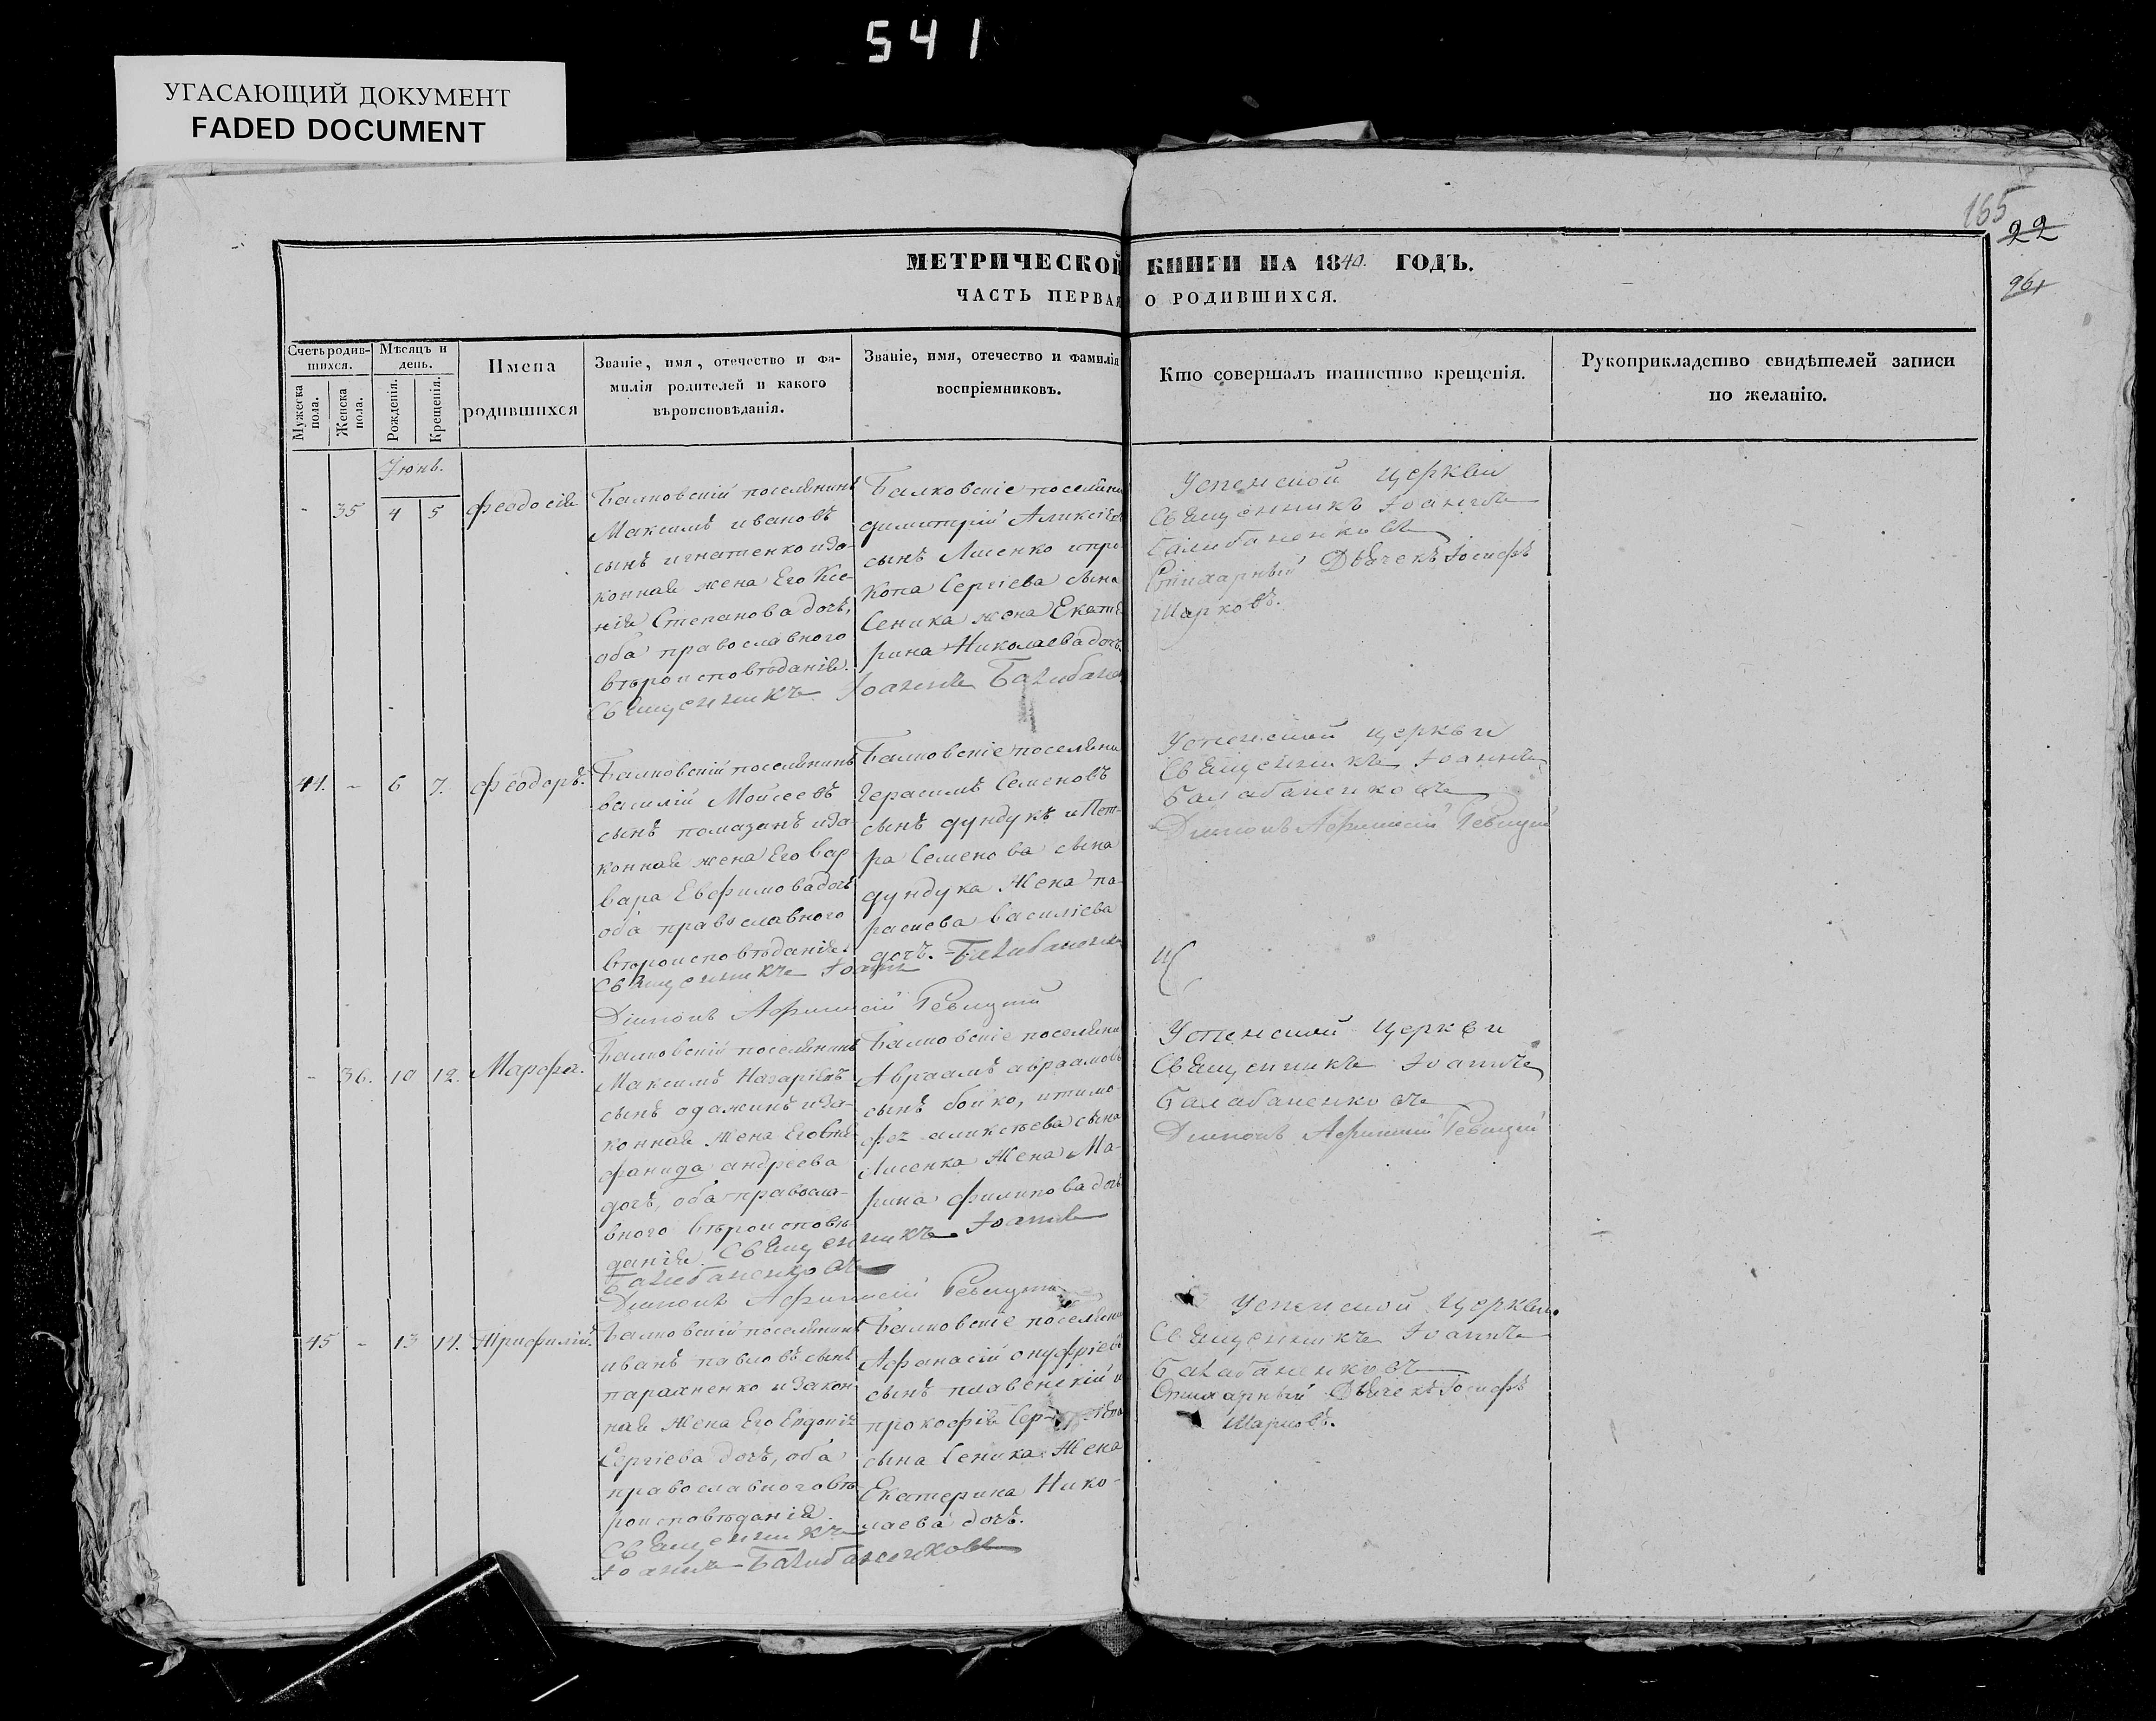 541
УГАСАЮЩИЙ ДОКУМЕНТ
FADED DOCUMENT
165
22
961
МЕТРИЧЕСКОЙ КНИГИ НА 1840. ГОДЪ.
ЧАСТЬ ПЕРВАЯ О РОДИВШИХСЯ.
Счетъ родив-
шихся.
Мужеска пола.
Женска пола.
Мѣсяцъ и
день.
Рожденія.
Крещенія.
Имена
родившихся
Званіе, имя, отечество и фа-
милія родителей и какого
вѣроисповѣданія.
Званіе, имя, отечество и фамилія
воспріемниковъ.
Кто совершалъ таинство крещенія.
Рукоприкладство свидѣтелей записи
по желанію.
Іюнь.
- 35 4 5 Феодосія
Балковскій поселянинъ
Максимъ ивановъ
сынъ игнатенко иза-
конная жена Его Ксе-
нія Степанова дочь,
оба православного
вѣроисповѣданія.
Балковскіе поселяни
димитрій Аликсіев
сынъ Лисенко ипро-
копа Сергіева сына
Сеника жена Екате-
рина Николаева дочь
Священникъ Іоаннъ Балабанен
Успенской церкви
Священникъ Іоаннъ
Балабаненковъ
Стихарный Дьячекъ Іосифъ
Шарковъ.
41. - 6 7. Феодоръ.
Балковскій поселянинъ
василій Мойсеевъ
сынъ помазанъ иза
конная жена Его вар
вара Евфимова дочь
оба православного
вѣроисповѣданія.
Балковскіе поселяни
Герасимъ Семеновъ
сынъ дундукъ и Пет-
ра Семенова сына
дундука Жена па-
раскева василіева
дочь.
Священникъ Іоаннъ Балабаненко
Діаконъ Афанасій Левицкій
Успенской церкви
Священникъ Іоаннъ
Балабаненковъ
Діаконъ Афанасій Левицкій
- 36. 10 12. Марфа.
Балковскій поселянинъ
Максимъ Назаріевъ
сынъ одажинъ иза-
конная жена Его
фанида андреева
дочь, оба правосла-
вного вѣроисповѣ-
данія.
Балковскіе поселяни
Авраамъ авраамовъ
сынъ бойко, итимо-
фея аликсѣева сына
Лисенка Жена Ма-
рина филипова дочь
Священникъ Іоаннъ
Балабаненковъ
Діаконъ Афанасій Левицкій
Успенской церкви
Священникъ Іоаннъ
Балабаненковъ
Діаконъ Афанасій Левицкій
45 - 13 14. Трифилій.
Балковскій поселянинъ
иванъ павловъ сынъ
параненко и закон
ная Жена Его Евдокія
Сергіева дочь, оба
православного вѣ-
роисповѣданія.
Балковскіе поселяни
Афанасій онуфріевъ
сынъ плавенскій и
прокофія
сына Сеника Жена
Екатерина Нико-
лаева дочь.
Священникъ
Іоаннъ Балабаненковъ
Успенской церкви
Священникъ Іоаннъ
Балабаненковъ
Стихарный Дьячекъ Іосифъ
Шарковъ.